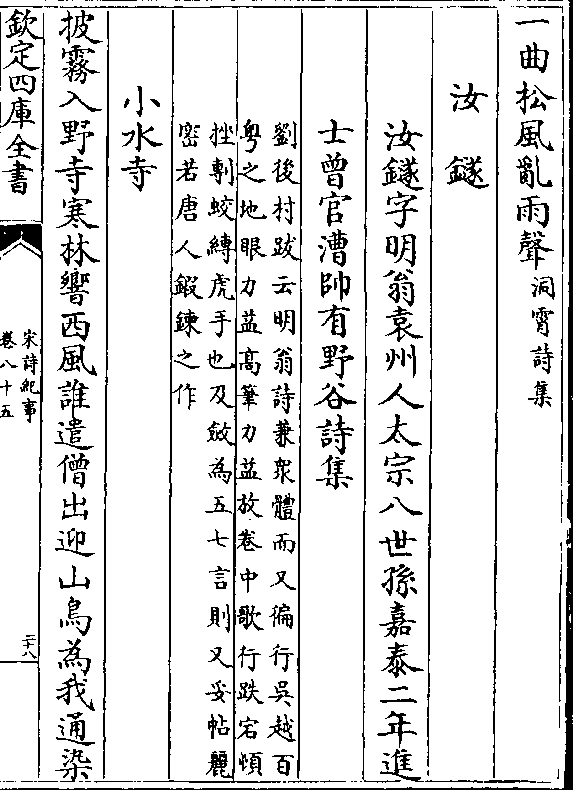 一曲松風亂雨聲洞霄詩集
汝鐩
汝鐩字明翁袁州人太宗八世孫嘉泰二年進
士曾官漕帥有野谷詩集
劉後村跋云明翁詩兼衆體而又徧行吳越百
粤之地眼力益高筆力益放卷中歌行跌宕頓
挫剸蛟縛虎手也及斂為五七言則又妥帖麗
密若唐人鍛鍊之作
小水寺
披霧入野寺寒林響西風誰遣僧出迎山鳥為我通染
欽定四庫全書
宋詩紀事
卷八十五
二十八